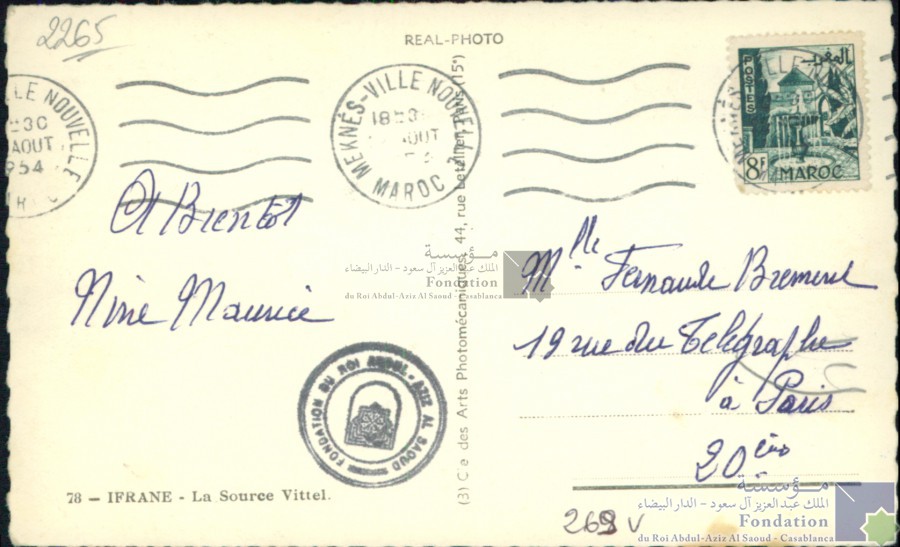 2265
REAL-PHOTO
LE NOUVELLE
30
AOUT
1954
MEKNÈS-VILLE NOUVELLE
18
AOUT
MAROC
POSTES
المغرب
8F MAROC
A Bientôt
Nine Maurice
Mlle Fernande
19 rue du Télégraphe
à Paris
20ème
مؤسسة
الملك عبد العزيز آل سعود - الدار البيضاء
Fondation
du Roi Abdul-Aziz Al Saoud - Casablanca
FONDATION DU ROI ABDUL-AZIZ AL SAOUD
(3) Cie des Arts Photomécaniques, 44, rue Letellier, Paris (15e)
78 - IFRANE - La Source Vittel.
مؤسسة
الملك عبد العزيز آل سعود - الدار البيضاء
Fondation
du Roi Abdul-Aziz Al Saoud - Casablanca